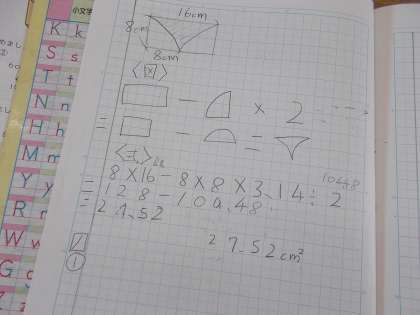 小文字
K k
S s
T t
N n
H h
M m
Y y
R r
W w
G
Z z
16cm
8cm
8cm
〈図〉
− × 2
= − =
〈式〉
8×16−8×8×3.14÷2
=128−100.48
=27.52
27.52cm²
①